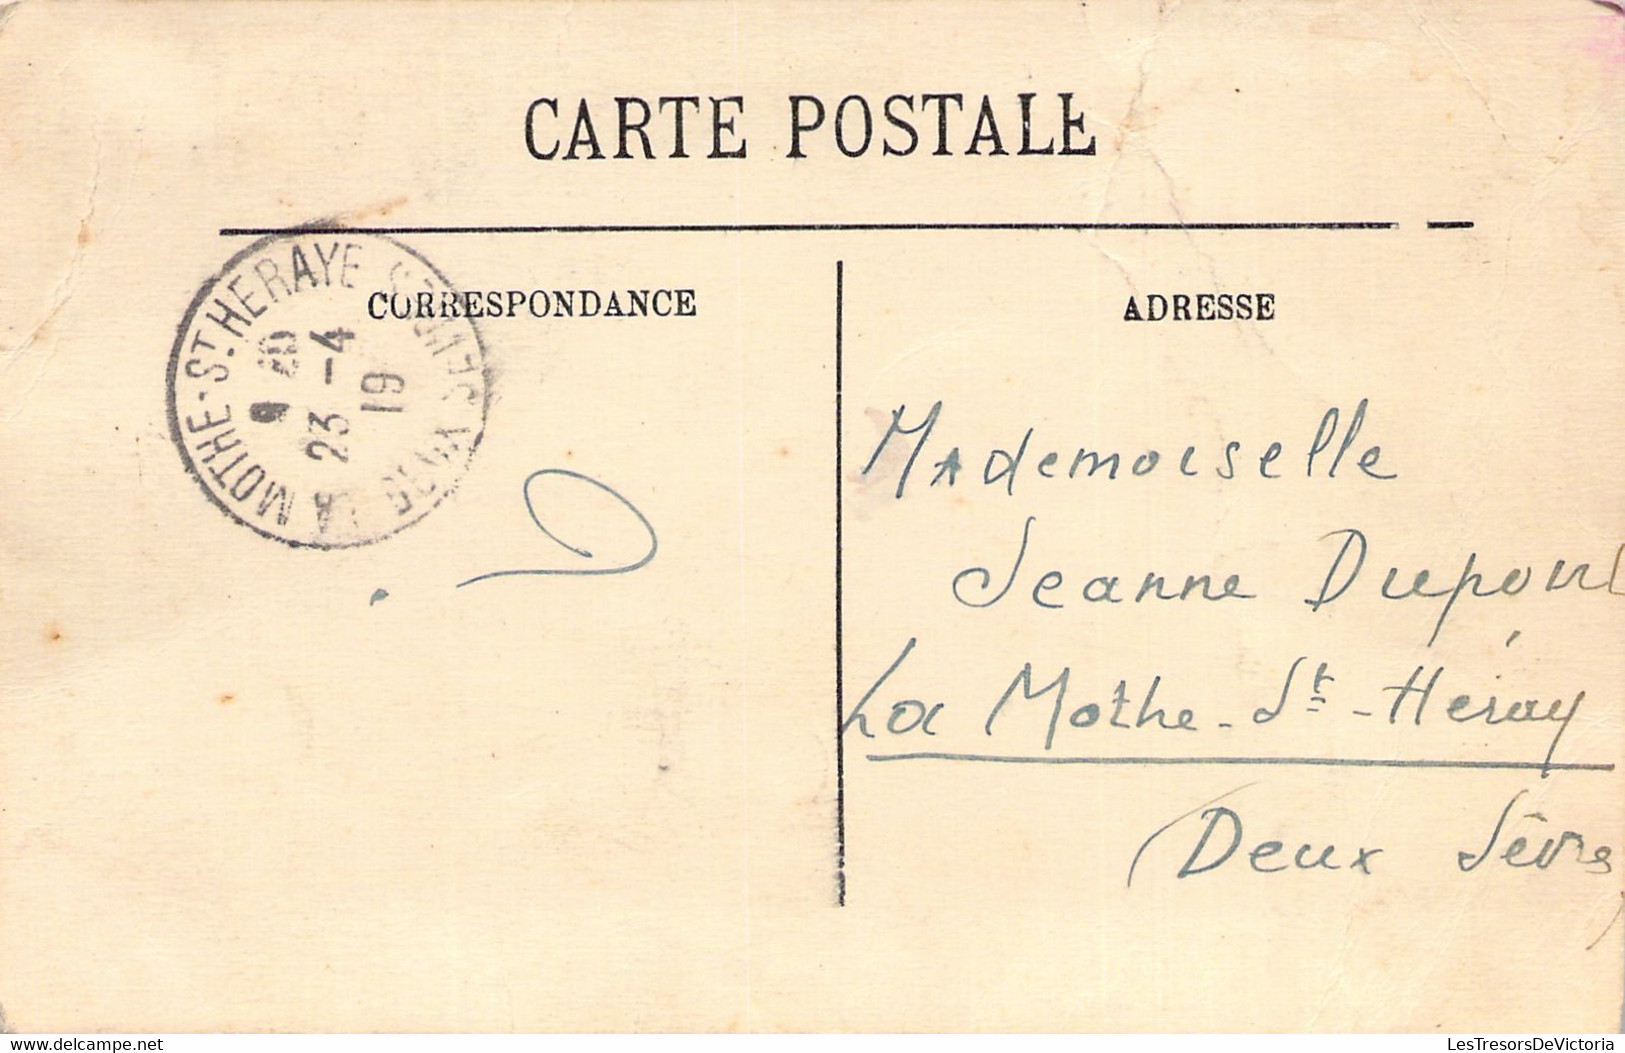 CARTE POSTALE
CORRESPONDANCE
ADRESSE
LA MOTHE-ST HERAYE DEUX SEVRES
9 20
23 -4
19
Mademoiselle
Jeanne Dupont
La Mothe-St-Héray
(Deux Sèvres)
delcampe.net
LesTresorsDeVictoria